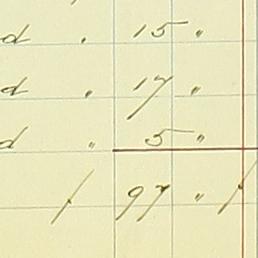 d " 15 "
d " 17 "
d " 5 "
/ 97 " /